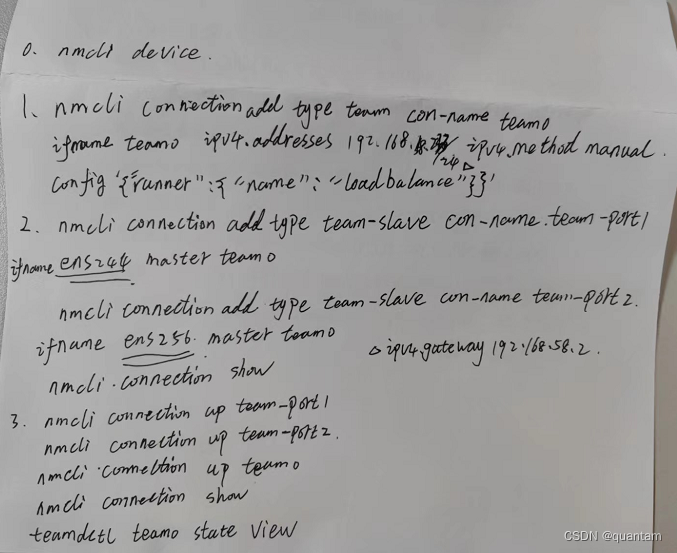 0. nmcli device.
1. nmcli connection add type team con-name teamo
ifname teamo ipv4.addresses 192.168. /24 ipv4.method manual.
config '{"runner":{"name":"loadbalance"}}'
2. nmcli connection add type team-slave con-name.team-port1
ifname ens244 master teamo
nmcli connection add type team-slave con-name team-port2.
ifname ens256. master teamo
△ ipv4.gateway 192.168.58.2.
nmcli.connection show
3. nmcli connection up team-port1
nmcli connection up team-port2.
nmcli connection up teamo
nmcli connection show
teamdctl teamo state view
CSDN @quantam